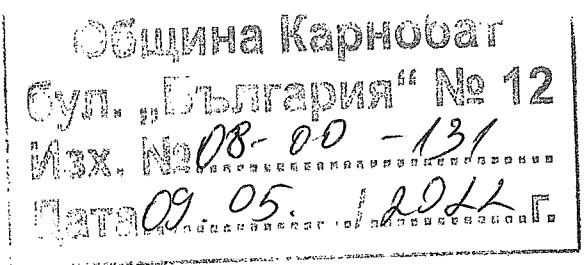 Община Карнобат
бул. „България“ № 12
Изх. № 08-00-131
Дата 09.05. / 2022 г.